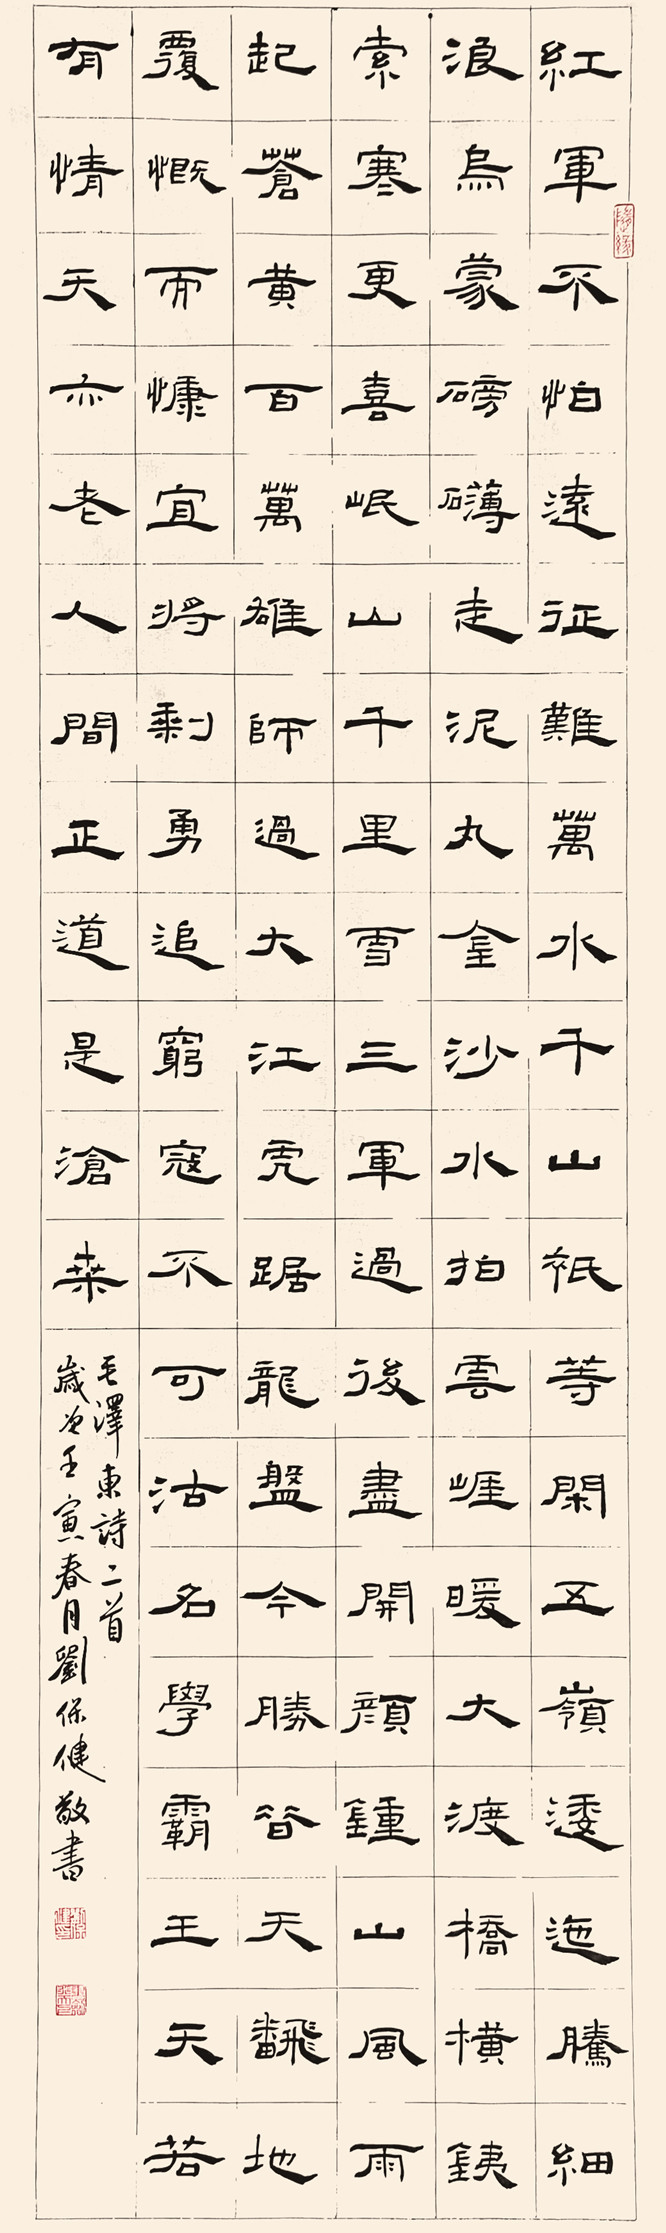 紅軍不怕遠征難萬水千山祇等閑五嶺逶迤騰細
浪烏蒙磅礴走泥丸金沙水拍雲崖暖大渡橋橫鉄
索寒更喜岷山千里雪三軍過後盡開顏鍾山風雨
起蒼黃百萬雄師過大江虎踞龍盤今勝昔天飜地
覆慨而慷宜將剩勇追窮寇不可沽名學霸王天若
有情天亦老人間正道是滄桑
毛澤東詩二首
歲次壬寅春月劉保健敬書
隨緣